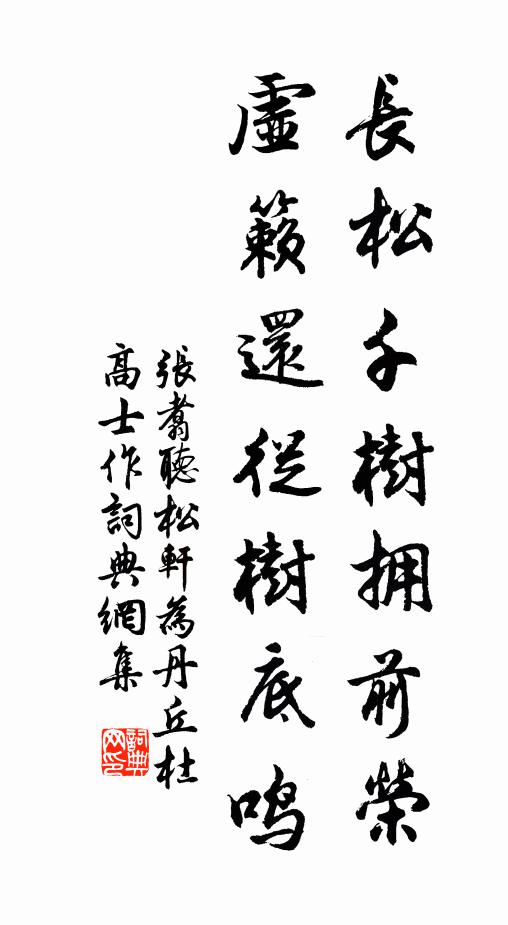 長松千樹拥前榮
虛籟還從樹底鳴
張翥聽松軒為丹丘杜
高士作詞典網集